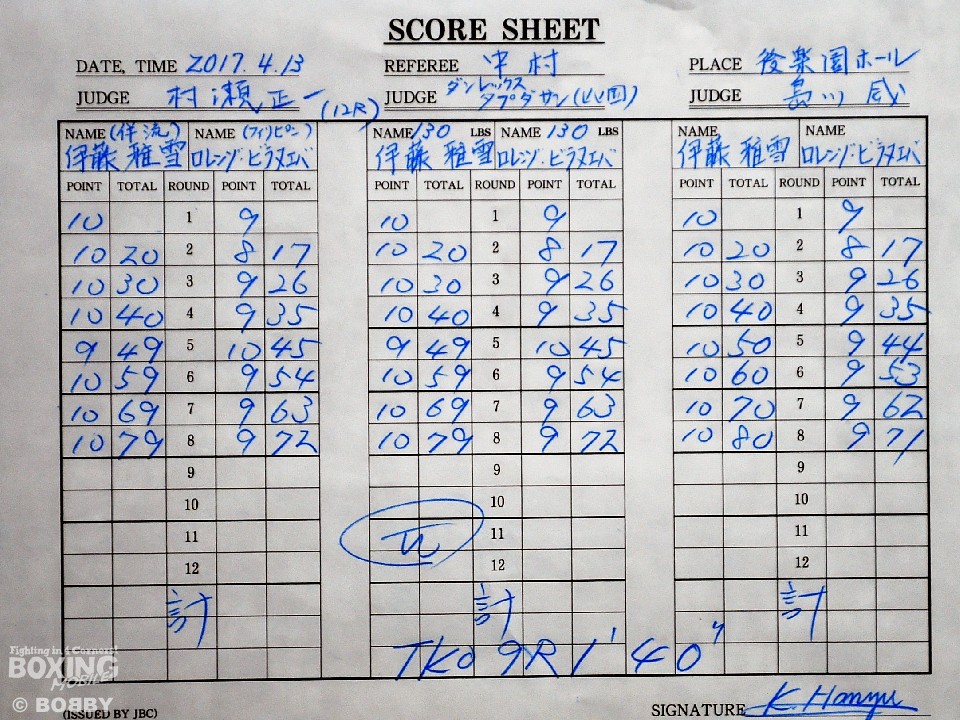 SCORE SHEET
DATE, TIME 2017.4.13 REFEREE 中村 PLACE 後楽園ホール
JUDGE 村瀬正一 (12R) JUDGE ダンレックス タプダサン(比国) JUDGE 島川威
NAME (伴流) NAME (フィリピン) NAME 130 LBS NAME 130 LBS NAME NAME
伊藤 雅雪 ロレンゾ・ビラヌエバ 伊藤 雅雪 ロレンゾ・ビラヌエバ 伊藤 雅雪 ロレンゾ・ビラヌエバ
POINT TOTAL ROUND POINT TOTAL POINT TOTAL ROUND POINT TOTAL POINT TOTAL ROUND POINT TOTAL
10 1 9 10 1 9 10 1 9
10 20 2 8 17 10 20 2 8 17 10 20 2 8 17
10 30 3 9 26 10 30 3 9 26 10 30 3 9 26
10 40 4 9 35 10 40 4 9 35 10 40 4 9 35
9 49 5 10 45 9 49 5 10 45 10 50 5 9 44
10 59 6 9 54 10 59 6 9 54 10 60 6 9 53
10 69 7 9 63 10 69 7 9 63 10 70 7 9 62
10 79 8 9 72 10 79 8 9 72 10 80 8 9 71
9 9 9
10 10 10
11 11 11
12 12 12
計 計 計
TKO 9R 1'40"
Fighting in 4 Corners!
BOXING
MOBILE
© BOBBY
(ISSUED BY JBC) SIGNATURE K. Hanyu